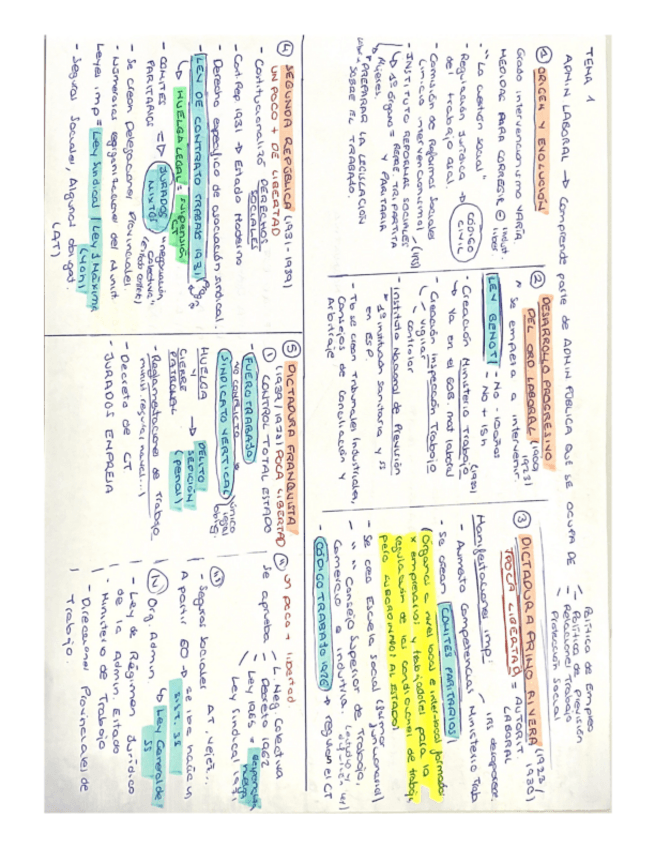 TEMA 1
ADMIN LABORAL → Comprende parte de ADMIN PÚBLICA QUE SE OCUPA DE
- Política de Empleo
- Política de Previsión
- Relaciones Trabajo
- Protección Social
① ORIGEN Y EVOLUCIÓN
Grado intervencionismo VARÍA
MEDIDAS PARA CORREGIR
- "La cuestión social"
- Regulación Jurídica → CÓDIGO CIVIL
del trabajo
- Comisión de Reformas Sociales
(inicio intervencionismo)
- INSTITUTO REFORMAS SOCIALES
↳ 1º órgano = REPR. TRIPARTITA
Y PARITARIA
"PREPARAR LA LEGISLACIÓN
SOBRE EL TRABAJO.
② DESARROLLO PROGRESIVO
DEL ORD LABORAL (1900
1923)
" Se empieza a intervenir.
LEY BENOT - No - 10 años
- No + 15h
- Creación Ministerio Trabajo
→ Ya en el GOB. mat laboral
- Creación Inspección Trabajo
vigilar
controlar
- Instituto Nacional de Previsión
1ª institución sanitaria y SS
en ESP.
- Tb se crean Tribunales Industriales,
Consejos de Conciliación y
Arbitraje
③ DICTADURA PRIMO RIVERA (1923/
1930)
POCA LIBERTAD = AUTORIT
LABORAL
Manifestaciones imp:
IRS desaparece.
- Aumento competencias Ministerio Trab
- Se crean COMITÉS PARITARIOS
(Órganos a nivel local e interlocal formados
x empresarios y trabajadores para la
regulación de las condiciones de trabajo
pero SUBORDINADOS AL ESTADO)
- Se crea Escuela Social (formar funcionarios)
- " " Consejo Superior de Trabajo,
Comercio e industria.
- CÓDIGO TRABAJO 1926 → regulan el CT
④ SEGUNDA REPÚBLICA (1931-1939)
UN POCO + DE LIBERTAD
- Constitucionalizó DERECHOS
SOCIALES
- Cont Rep 1931 → Estado Moderno
- Derecho específico de asociación sindical.
- LEY DE CONTRATO TRABAJO 1931
↳ HUELGA LEGAL = suspensión
CT
- COMITÉS
PARITARIOS ⇒ JURADOS
MIXTOS "negociación
colectiva"
- Se crean Delegaciones Provinciales
- Numerosas reorganizaciones del Minist
Leyes imp = Ley Sindical / Ley J Máxima
(40h)
- Seguros Sociales, Algunos obligat.
(AT)
⑤ DICTADURA FRANQUISTA
(1939/1975) POCA LIBERTAD
① CONTROL TOTAL ESTADO
- FUERO TRABAJO
NO CONFLICTO
SINDICATO VERTICAL único
legal
oblig.
HUELGA
Y CIERRE
PATRONAL → DELITO
SEDICIÓN
(penal)
- Reglamentaciones de Trabajo
- Decreto de CT
- JURADOS EMPRESA
ii) un poco + libertad
Se aprueba - L. Neg Colectiva
- Decreto 1962
- Ley 1965 =
Ley Sindical 1971
iii)
- Seguros Sociales AT, Vejez...
A partir 60 → se iba hacia un
SIST. SS
iv) Org. Admin ↳ Ley General de
SS
- Ley de Régimen Jurídico
de la Admin. Estado
- Ministerio de Trabajo
- Direcciones Provinciales de
Trabajo.